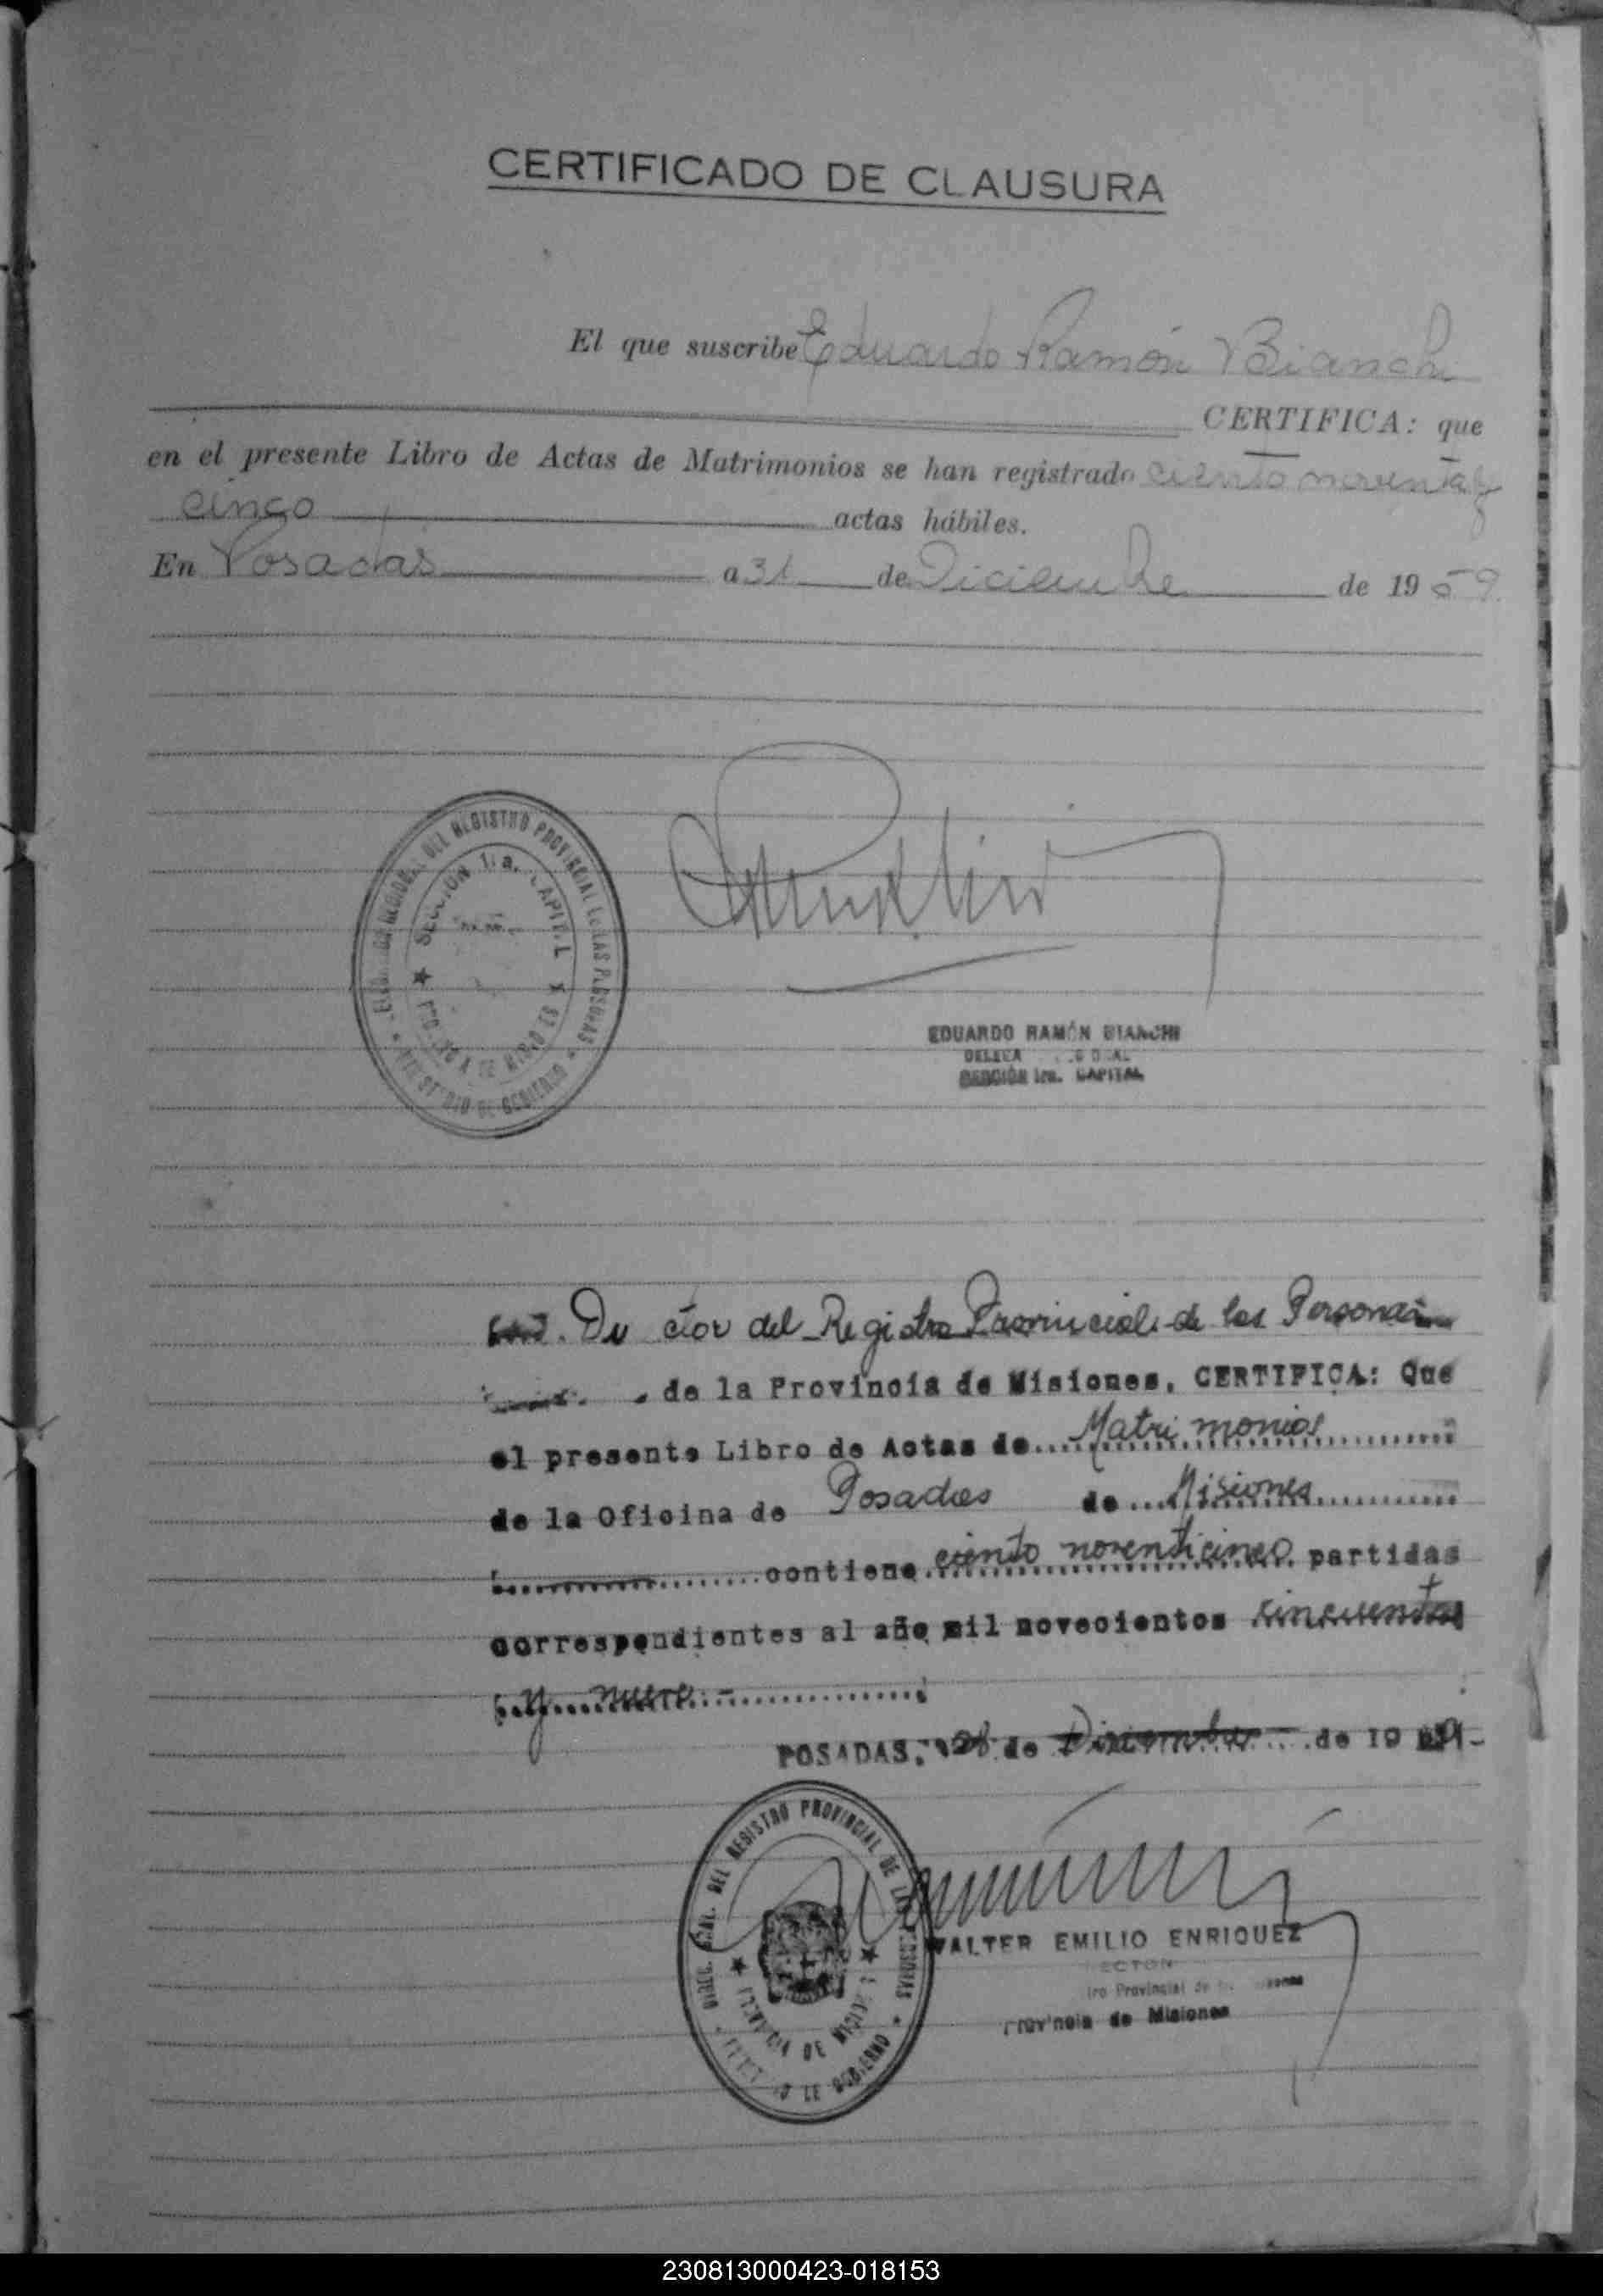 CERTIFICADO DE CLAUSURA
El que suscribe Eduardo Ramón Bianchi
CERTIFICA: que
en el presente Libro de Actas de Matrimonios se han registrado ciento noventa y
cinco actas hábiles.
En Posadas a 31 de Diciembre de 1959.
DEL REGISTRO PROVINCIAL DE LAS PERSONAS
SECCIÓN 1ra. CAPITAL
EDUARDO RAMÓN BIANCHI
SECCIÓN 1ra. CAPITAL
Director del Registro Provincial de las Personas
de la Provincia de Misiones, CERTIFICA: Que
el presente Libro de Actas de Matrimonios
de la Oficina de Posadas de Misiones
contiene ciento noventicinco partidas
correspondientes al año mil novecientos cincuenta
y nueve.-
POSADAS, de Diciembre de 19
DIREC. GRAL. DEL REGISTRO PROVINCIAL DE LAS PERSONAS
PROVINCIA DE MISIONES
DE GOBIERNO
WALTER EMILIO ENRIQUEZ
Provincial de
Provincia de Misiones
230813000423-018153